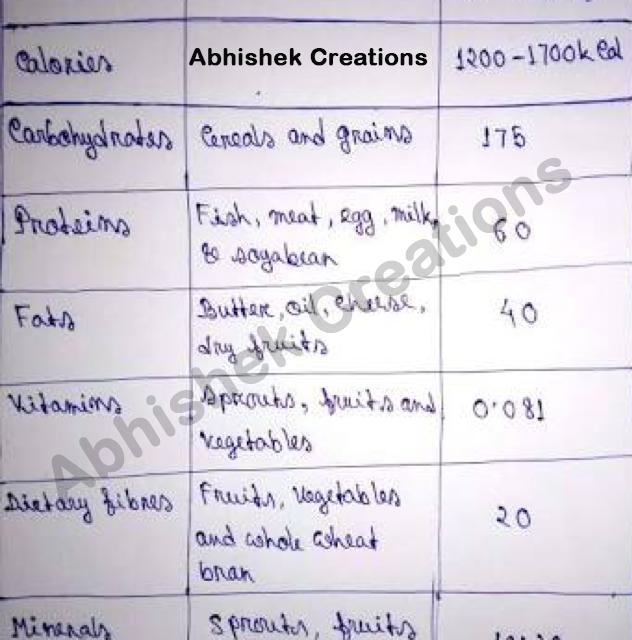 Calories
Abhishek Creations
1200-1700k Cal
Carbohydrates
Cereals and grains
175
Proteins
Fish, meat, egg, milk,
& soyabean
60
Fats
Butter, oil, cheese,
dry fruits
40
Vitamins
Sprouts, fruits and
vegetables
0.081
Dietary fibres
Fruits, vegetables
and whole wheat
bran
20
Minerals
Sprouts, fruits
Abhishek Creations